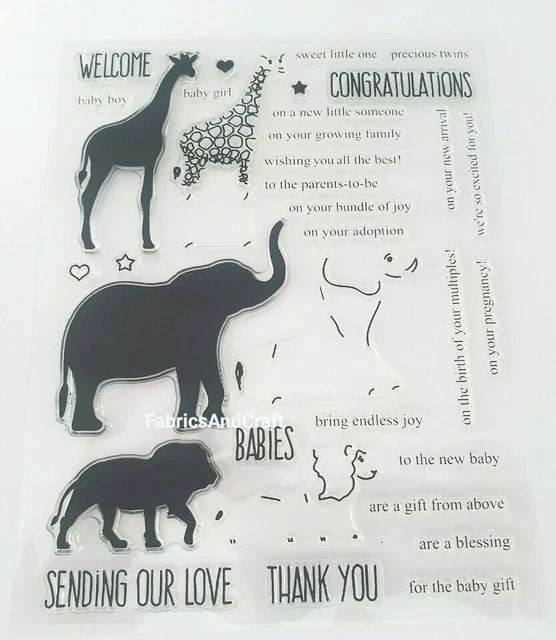 WELCOME
sweet little one
precious twins
baby boy
baby girl
CONGRATULATIONS
on a new little someone
on your growing family
wishing you all the best!
to the parents-to-be
on your bundle of joy
on your adoption
on your new arrival
we're so excited for you!
on the birth of your multiples!
on your pregnancy!
FabricsAndCraft
bring endless joy
BABIES
to the new baby
are a gift from above
are a blessing
SENDING OUR LOVE
THANK YOU
for the baby gift